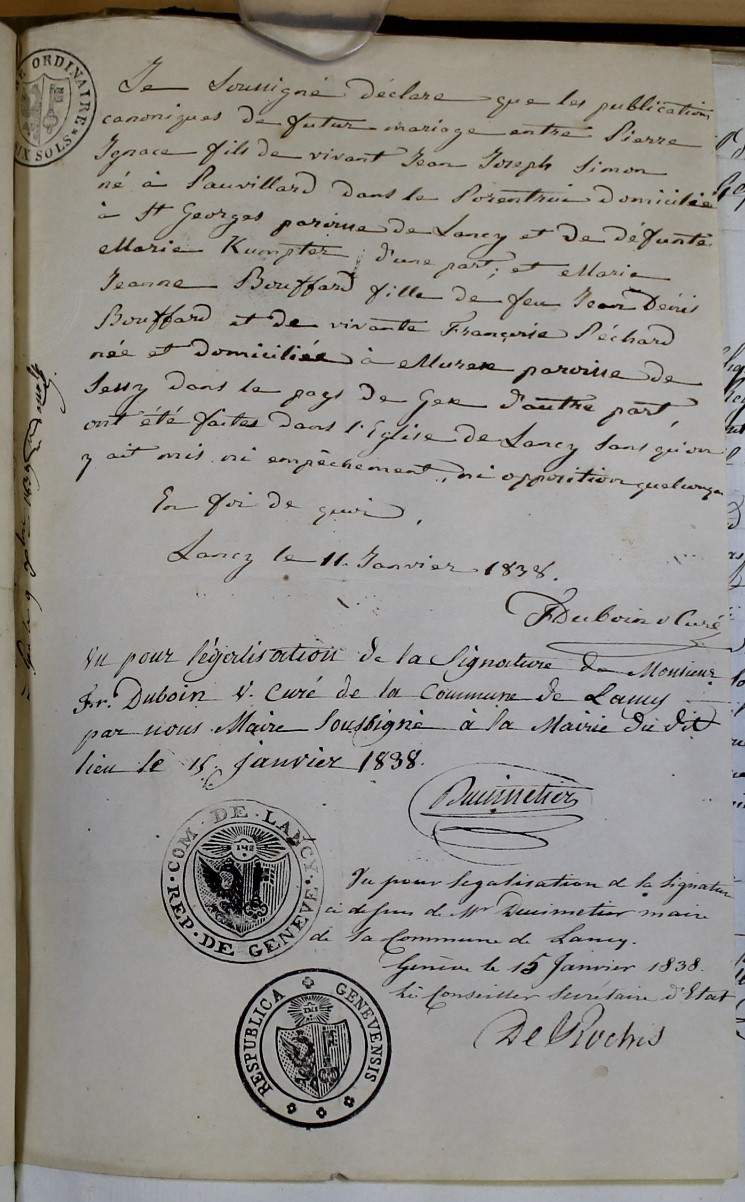 ORDINAIRE
SOLS
Je Soussigné déclare que les publications
canoniques de futur mariage entre Pierre
Ignace fils de vivant Jean Joseph Simon
né à Pauvillard dans le Porentrui domicilié
à St Georges paroisse de Lancy et de défunte
Marie Kumpter d'une part; et Marie
Jeanne Bouffard fille de feu Jean Denis
Bouffard et de vivante Françoise Péchard
née et domiciliée à Murex paroisse de
Sessy dans le pays de Gex d'autre part,
ont été faites dans l'Eglise de Lancy sans qu'on
y ait mis ni empêchement, ni opposition quelconque
En foi de quoi,
Lancy le 11 Janvier 1838.
F Duboin v. Curé
Vu pour légalisation de la Signature de Monsieur
Fr. Duboin V. Curé de la Commune de Lancy
par nous Maire Soussigné à la Mairie du dit
lieu le 15 Janvier 1838.
COM. DE. LANCY.
REP. DE GENEVE.
Vu pour légalisation de la signature
ci dessus de Mr maire
de la Commune de Lancy.
Genève le 15 Janvier 1838.
Le Conseiller Secrétaire d'Etat
De Roches
RESPUBLICA GENEVENSIS